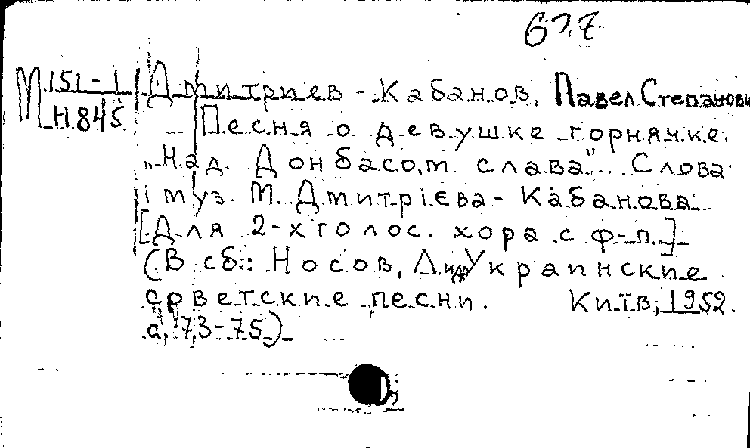 627
М 151-1 Дмитриев-Кабанов, Павел Степанович
Н845 Песня о девушке горнячке.
"Над Донбасом слава". Слова
і муз. М. Дмитрієва-Кабанова
[Для 2-х голос. хора с ф-п.]
(В сб.: Носов, Л. Украинские
советские песни. Київ, 1952.
с. 73-75)